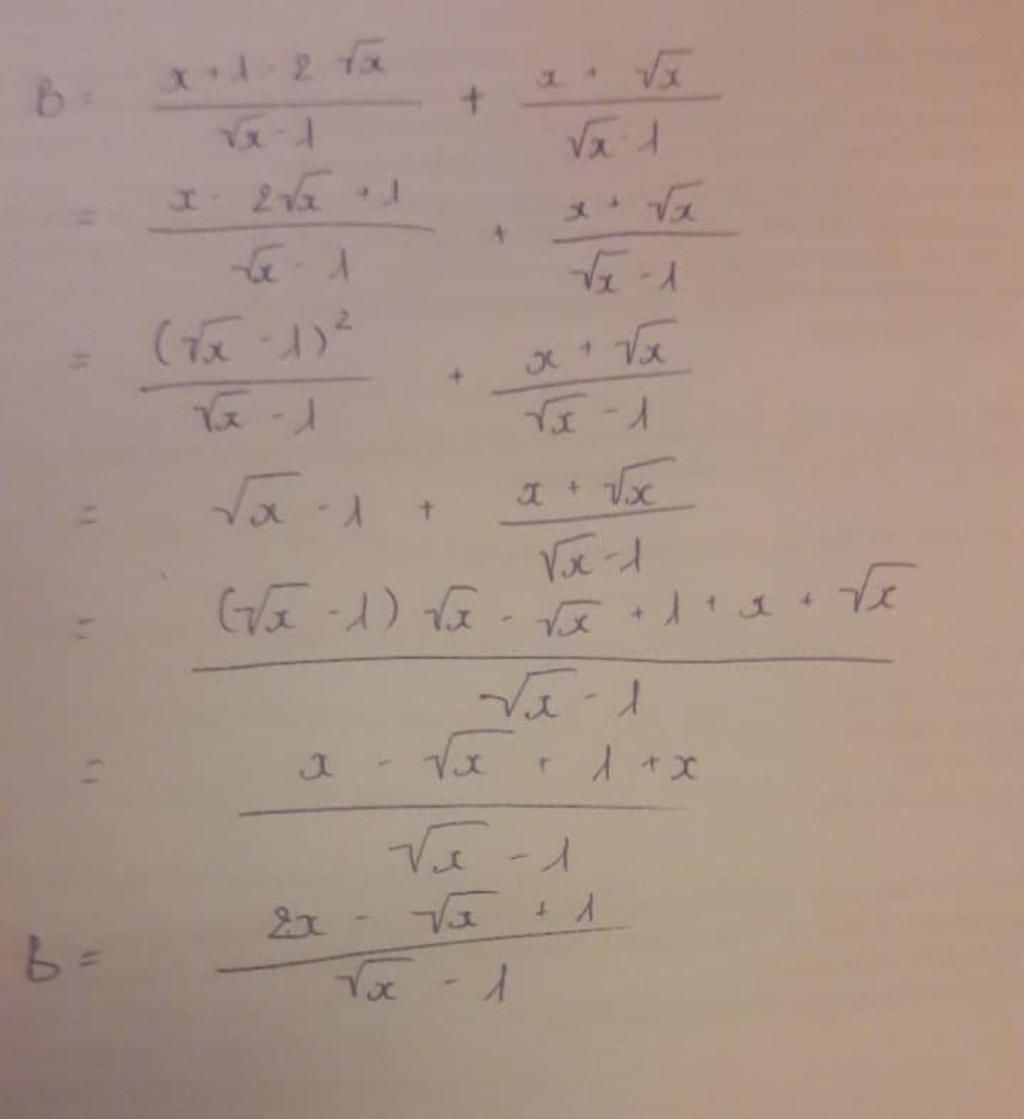 B = (x + 1 - 2√x)/(√x - 1) + (x + √x)/(√x - 1)
= (x - 2√x + 1)/(√x - 1) + (x + √x)/(√x - 1)
= (√x - 1)²/(√x - 1) + (x + √x)/(√x - 1)
= √x - 1 + (x + √x)/(√x - 1)
= ((√x - 1)√x - √x + 1 + x + √x)/(√x - 1)
= (x - √x + 1 + x)/(√x - 1)
B = (2x - √x + 1)/(√x - 1)